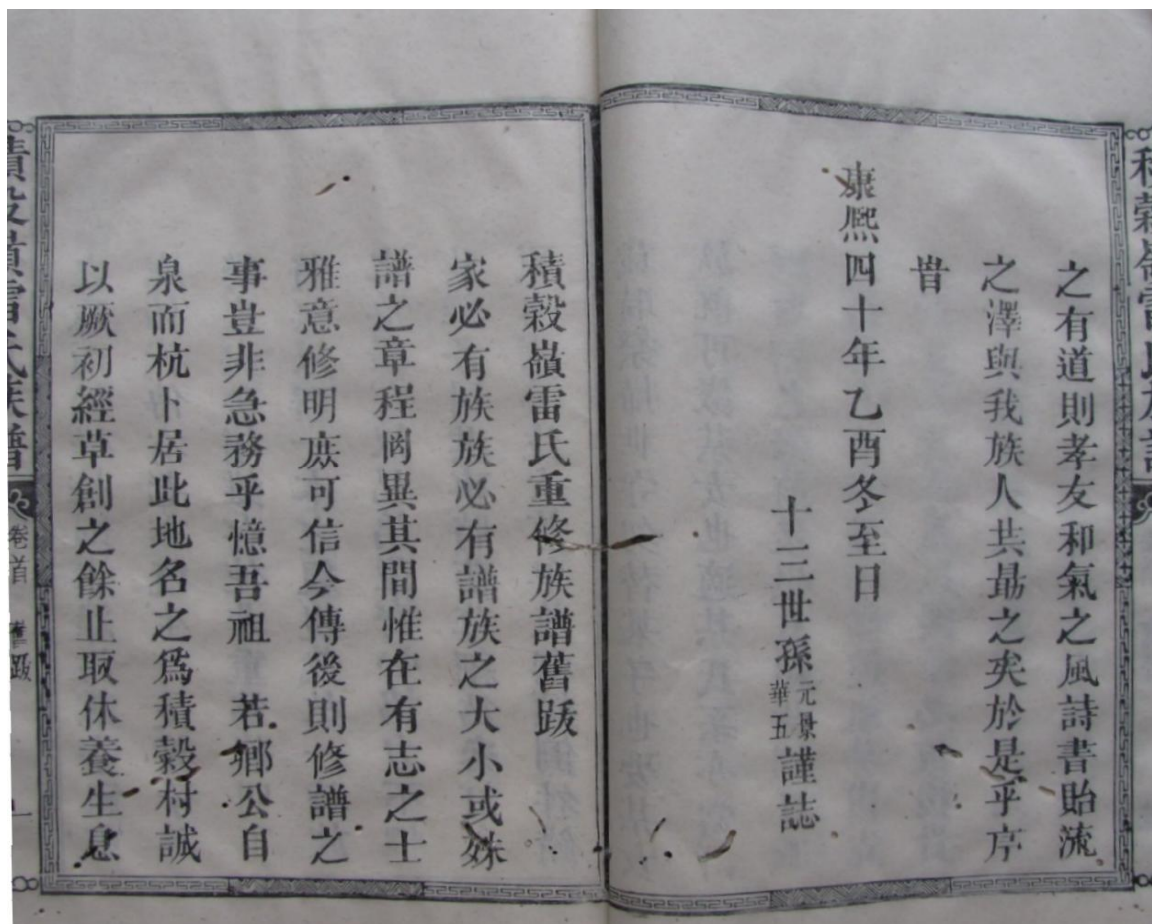 積穀嶺雷氏族譜
之有道則孝友和氣之風詩書貽流
之澤與我族人共勗之矣於是乎序
旹
康熙四十年乙酉冬至日
十三世孫元景華五謹誌
積穀嶺雷氏重修族譜舊跋
家必有族族必有譜族之大小或殊
譜之章程罔異其間惟在有志之士
雅意修明庶可信今傳後則修譜之
事豈非急務乎憶吾祖 若鄉公自
泉而杭卜居此地名之爲積穀村誠
以厥初經草創之餘止取休養生息
積穀嶺雷氏族譜 卷首 舊跋 一